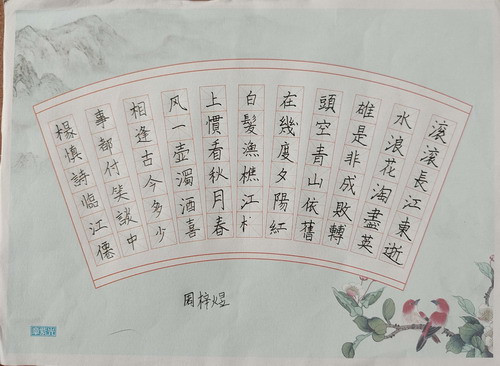 滚滚長江東逝
水浪花淘盡英
雄是非成敗轉
頭空青山依舊
在幾度夕陽紅
白髮漁樵江
上慣看秋月春
风一壺濁酒喜
相逢古今多少
事都付笑談中
楊慎詩臨江僊
周梓煜